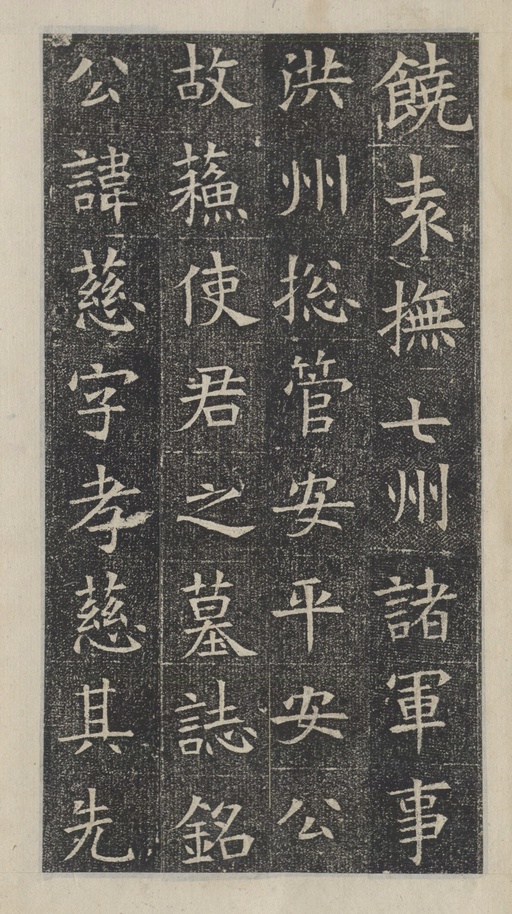 饒袁撫七州諸軍事
洪州揔管安平安公
故蘓使君之墓誌銘
公諱慈字孝慈其先